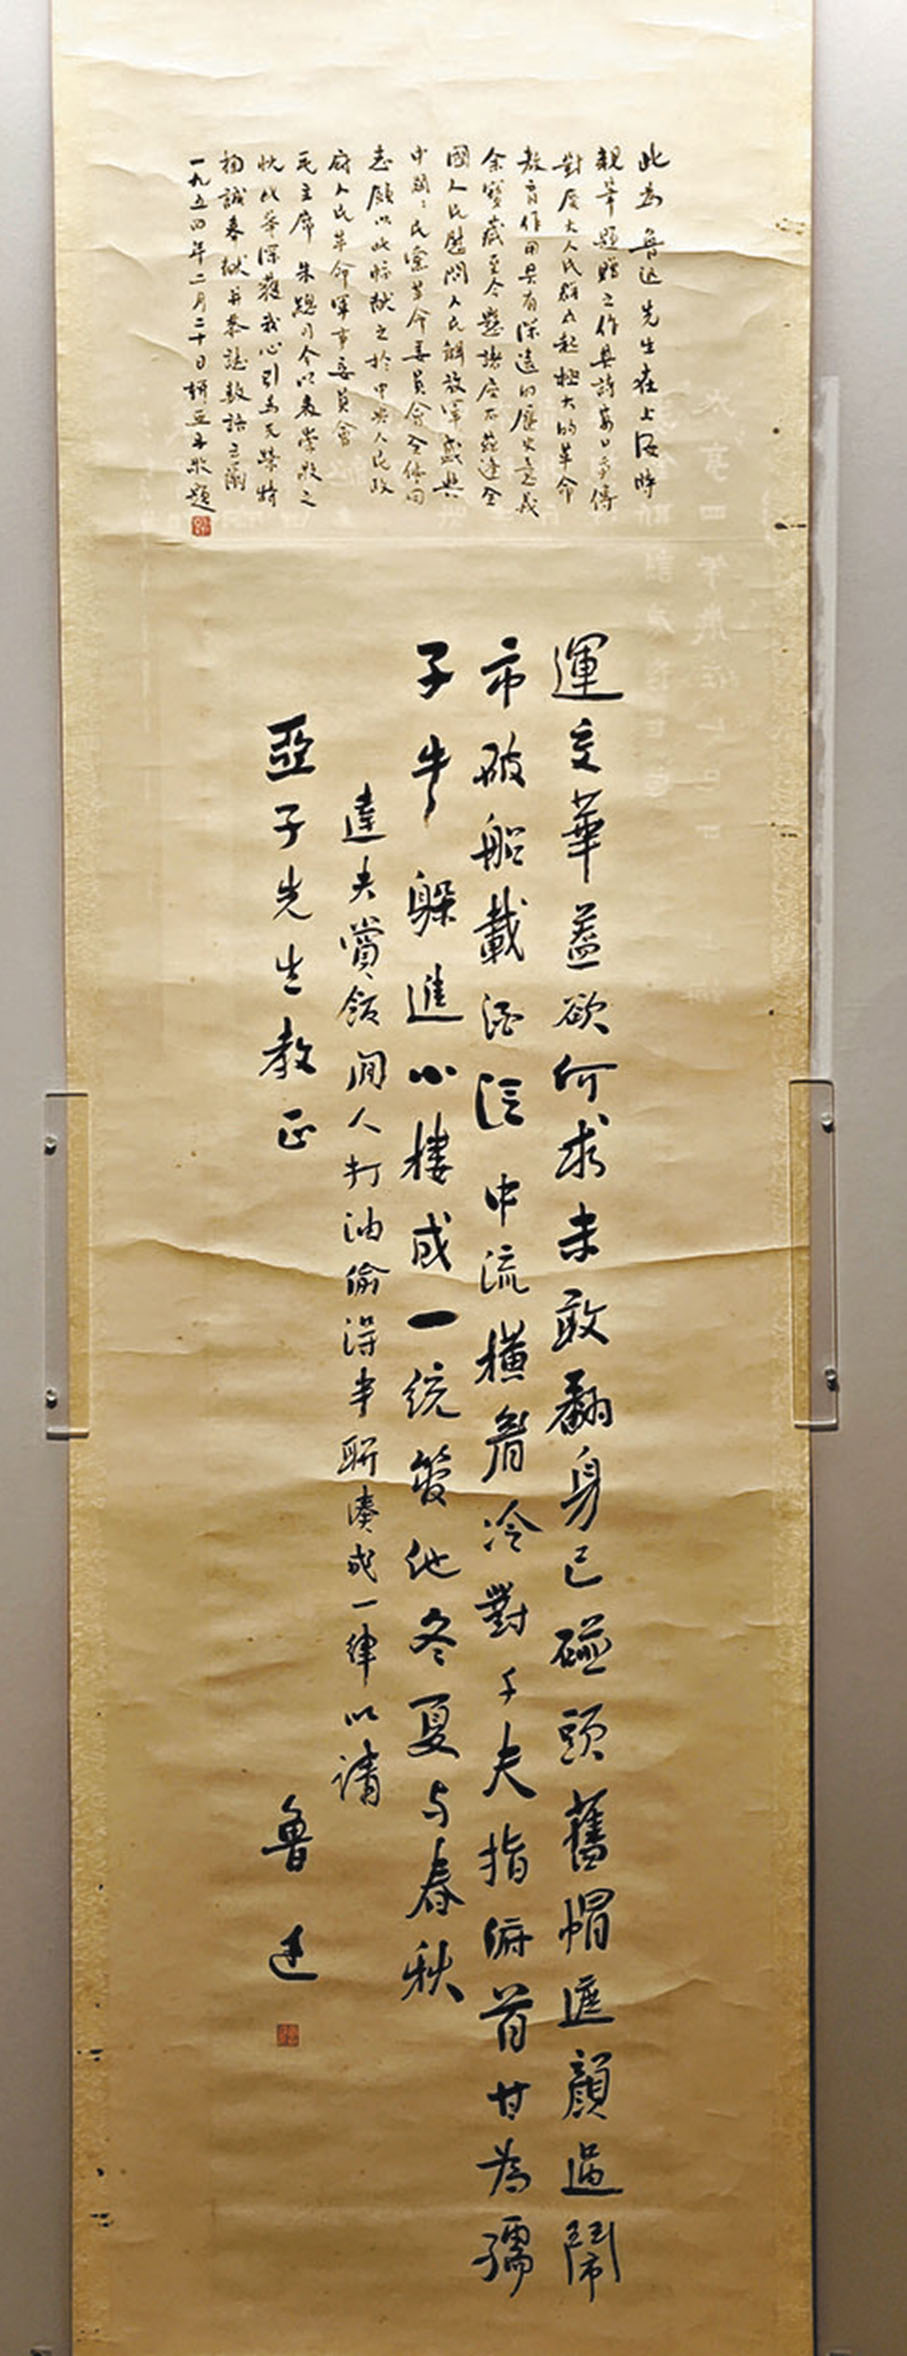 此为 鲁迅先生在上海時
親筆題贈之作其詩萬口爭傳
對广大人民群众起極大的革命
教育作用具有深遠的歷史意義
余寶藏至今懸諸座右茲逢全
國人民慰問人民解放軍盛典
中國々民黨革命委員會全体同
志願以此軸献之於中央人民政
府人民革命軍事委員會
毛主席 朱總司令以表崇敬之
忱此举深獲我心引為无榮特
掬誠奉献并恭誌数語
一九五四年二月二十日柳亞子敬題
運交華蓋欲何求未敢翻身已碰頭舊帽遮顏過鬧
市破船載酒泛中流橫眉冷對千夫指俯首甘為孺
子牛躲進小樓成一統管他冬夏与春秋
達夫賞飯閒人打油偷得半聯湊成一律以請
亞子先生教正
魯迅